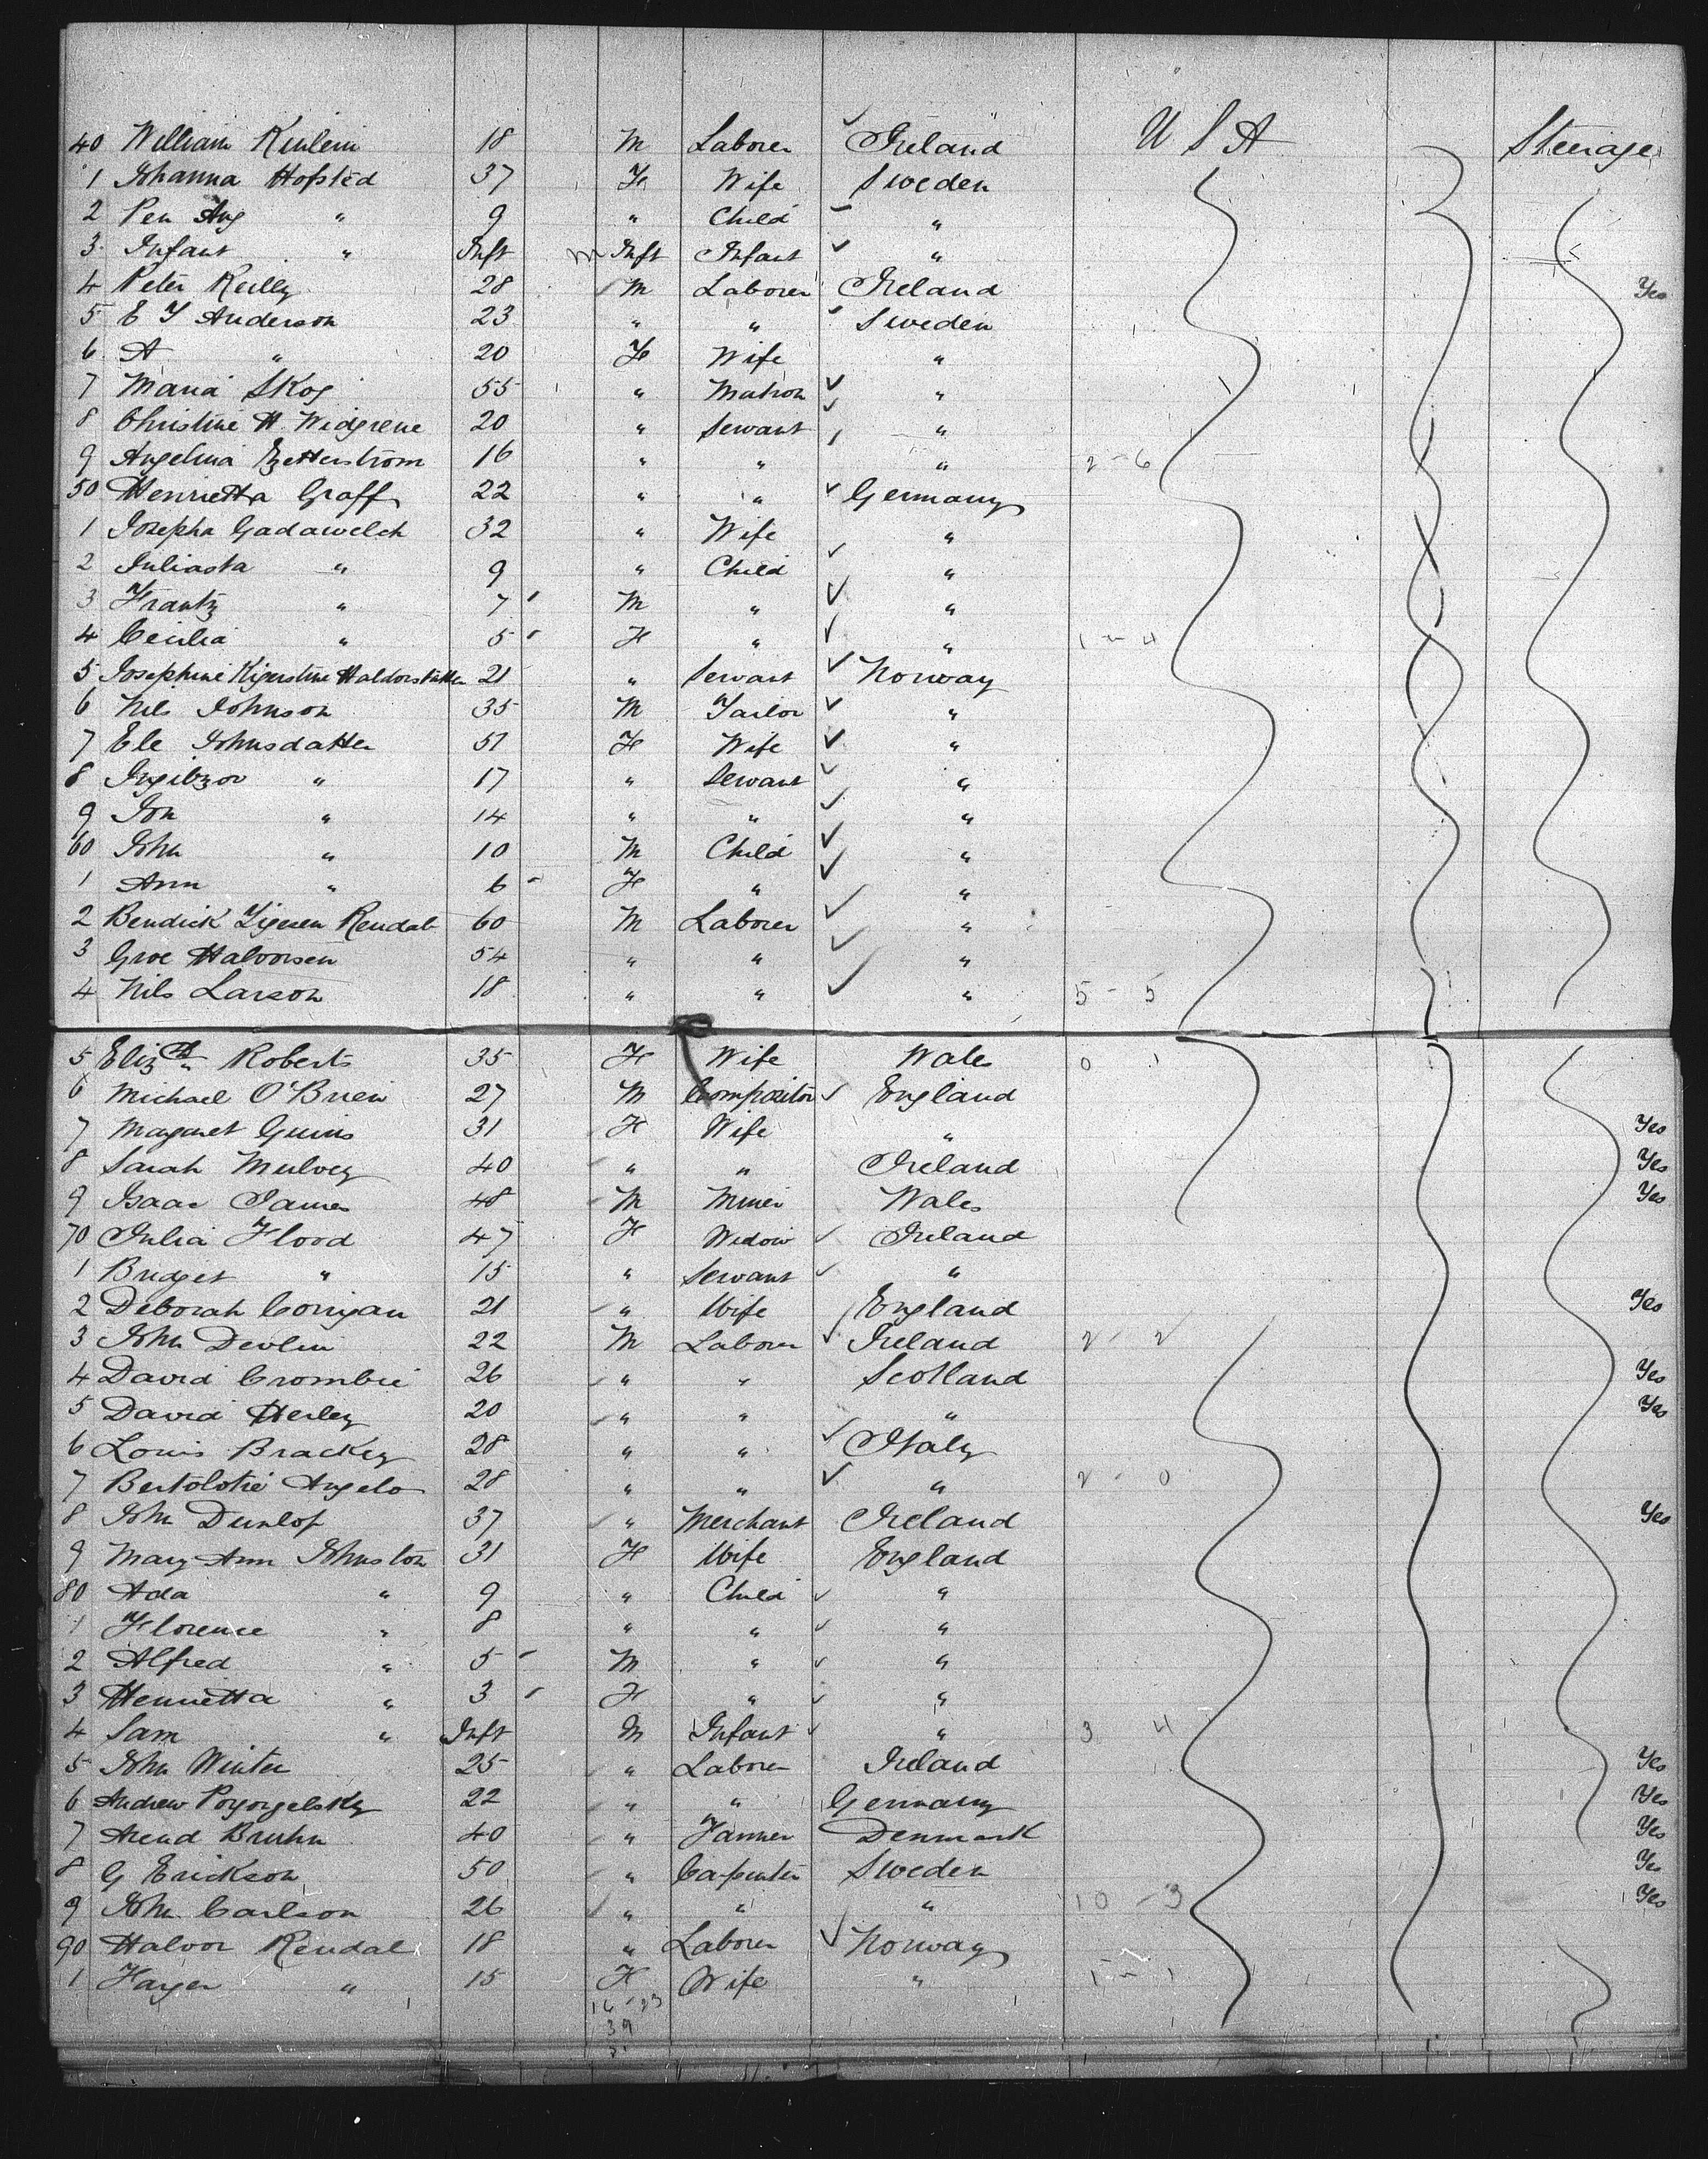 40 William Kinlein 18 M Laborer Ireland U S A Steerage
1 Johanna Hofsted 37 F Wife Sweden
2 Per Aug " 9 " Child "
3 Infant " Inft m Inft Infant "
4 Peter Reilly 28 M Laborer Ireland Yes
5 E J Anderson 23 " " Sweden
6 A " 20 F Wife "
7 Maria Skog 55 " Matron "
8 Christine H. Widgrene 20 " Servant "
9 Angelina Zetterstrom 16 " " " 2 - 6
50 Henrietta Graff 22 " " Germany
1 Josepha Gadawelch 32 " Wife "
2 Juliasta " 9 " Child "
3 Frantz " 7 M " "
4 Cecilia " 5 F " " 1 - 4
5 Josephine Kigerstine Haldorstatter 21 " Servant Norway
6 Nils Johnson 35 M Tailor "
7 Ele Johnsdatter 51 F Wife "
8 Ingibzor " 17 " Servant "
9 Jon " 14 " " "
60 John " 10 M Child "
1 Ann " 6 F " "
2 Bendick Ligesen Rendal 60 M Laborer "
3 Groe Halvorsen 54 " " "
4 Nils Larson 18 " " " 5 - 5
5 Elizth Roberts 35 F Wife Wales 0 1
6 Michael O'Brien 27 M Compositor England
7 Margaret Guins 31 F Wife " Yes
8 Sarah Mulvey 40 " " Ireland Yes
9 Isaac James 48 M Miner Wales Yes
70 Julia Flood 47 F Widow Ireland
1 Bridget " 15 " Servant "
2 Deborah Corrigan 21 " Wife England Yes
3 John Devlin 22 M Laborer Ireland 2 - 2
4 David Crombie 26 " " Scotland Yes
5 David Herley 20 " " " Yes
6 Louis Brackey 28 " " Italy
7 Bertolotie Angelo 28 " " " 2 - 0
8 John Dunlop 37 " Merchant Ireland Yes
9 Mary Ann Johnston 31 F Wife England
80 Ada " 9 " Child "
1 Florence " 8 " " "
2 Alfred " 5 M " "
3 Henrietta " 3 F " "
4 Sam " Inft M Infant " 3 4
5 John Winter 25 " Laborer Ireland Yes
6 Andrew Pogorgelsky 22 " " Germany Yes
7 Arend Bruhn 40 " Farmer Denmark Yes
8 G Erickson 50 " Carpenter Sweden Yes
9 John Carlson 26 " " " 10 - 3 Yes
90 Halvor Rendal 18 " Laborer Norway
1 Hayer " 15 F Wife " 1 - 1
16 - 23
39